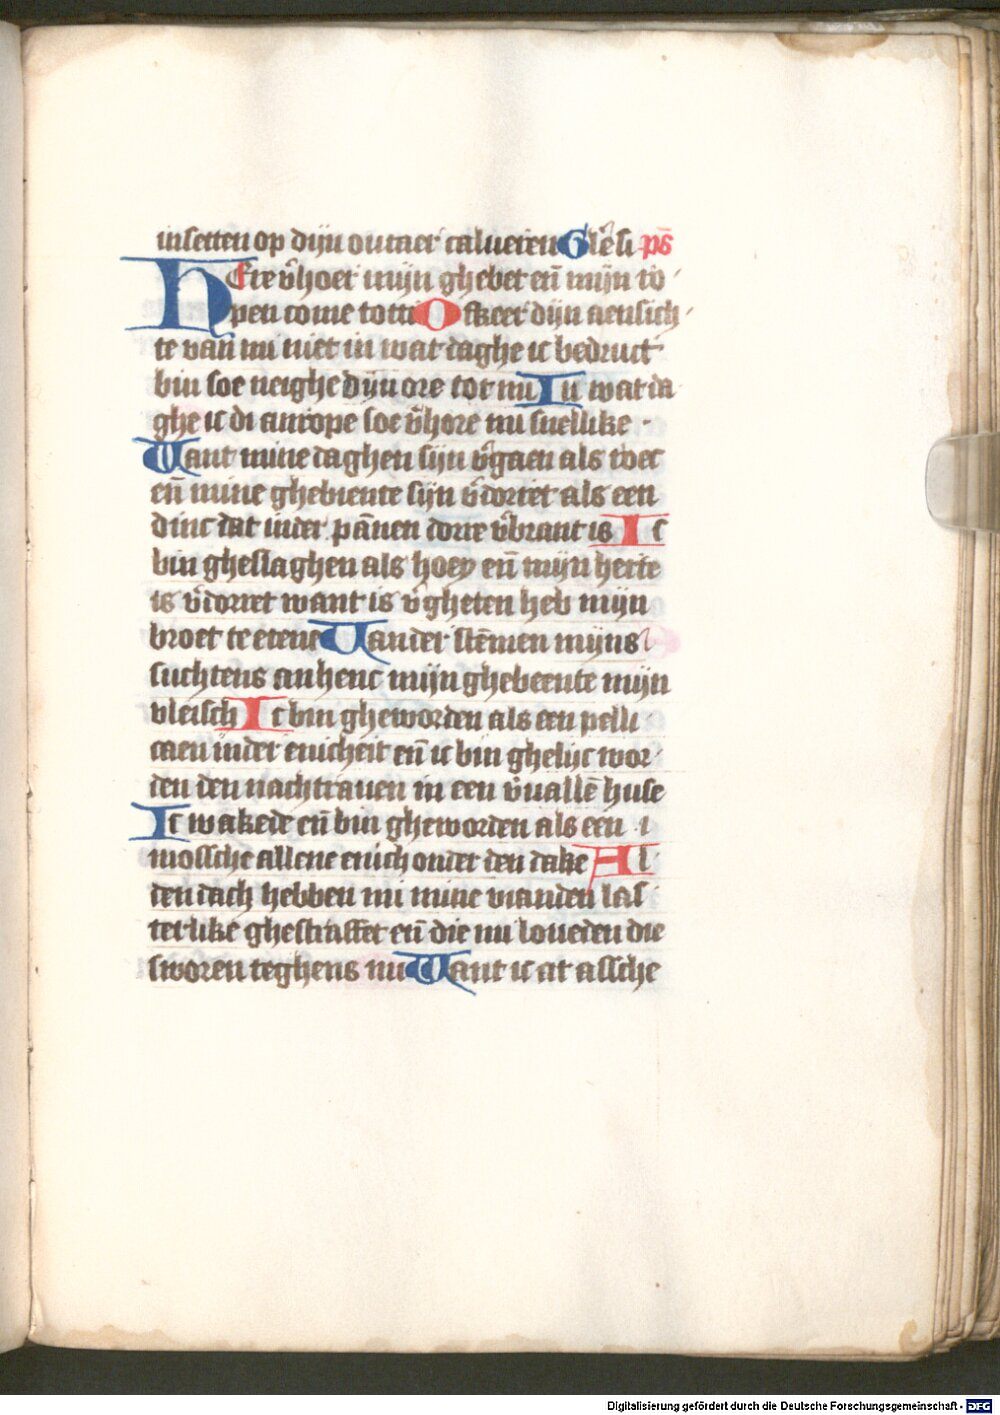 insetten op dijn outaer calueren Glē si ps̄
HEre v̄hoer mijn ghebet en̄ mijn ro
pen come tot ti Ofkeer dijn aensich
te van mi niet in wat daghe ic bedruct
bin soe neighe dijn ore tot mi In wat da
ghe ic di anrope soe v̄hore mi snellike
Want mine daghen sijn v̄gaen als roec
en̄ mine ghebiente sijn v̄dorret als een
dinc dat inder pānen dorre v̄brant is Ic
bin gheslaghen als hoey en̄ mijn herte
is v̄dorret want is v̄gheten heb mijn
broet te etene Vander stēmen mijns
suchtens anhenc mijn ghebeente mijn
vleisch Ic bin gheworden als een pelli
caen inder enicheit en̄ ic bin ghelijc wor
den den nachtrauen in een v̄uallē huse
Ic wakede en̄ bin gheworden als een
mossche allene enich onder den dake Al
den dach hebben mi mine vianden las
terlike ghestraffet en̄ die mi loueden die
sworen teghens mi Want ic at assche
Digitalisierung gefördert durch die Deutsche Forschungsgemeinschaft - DFG